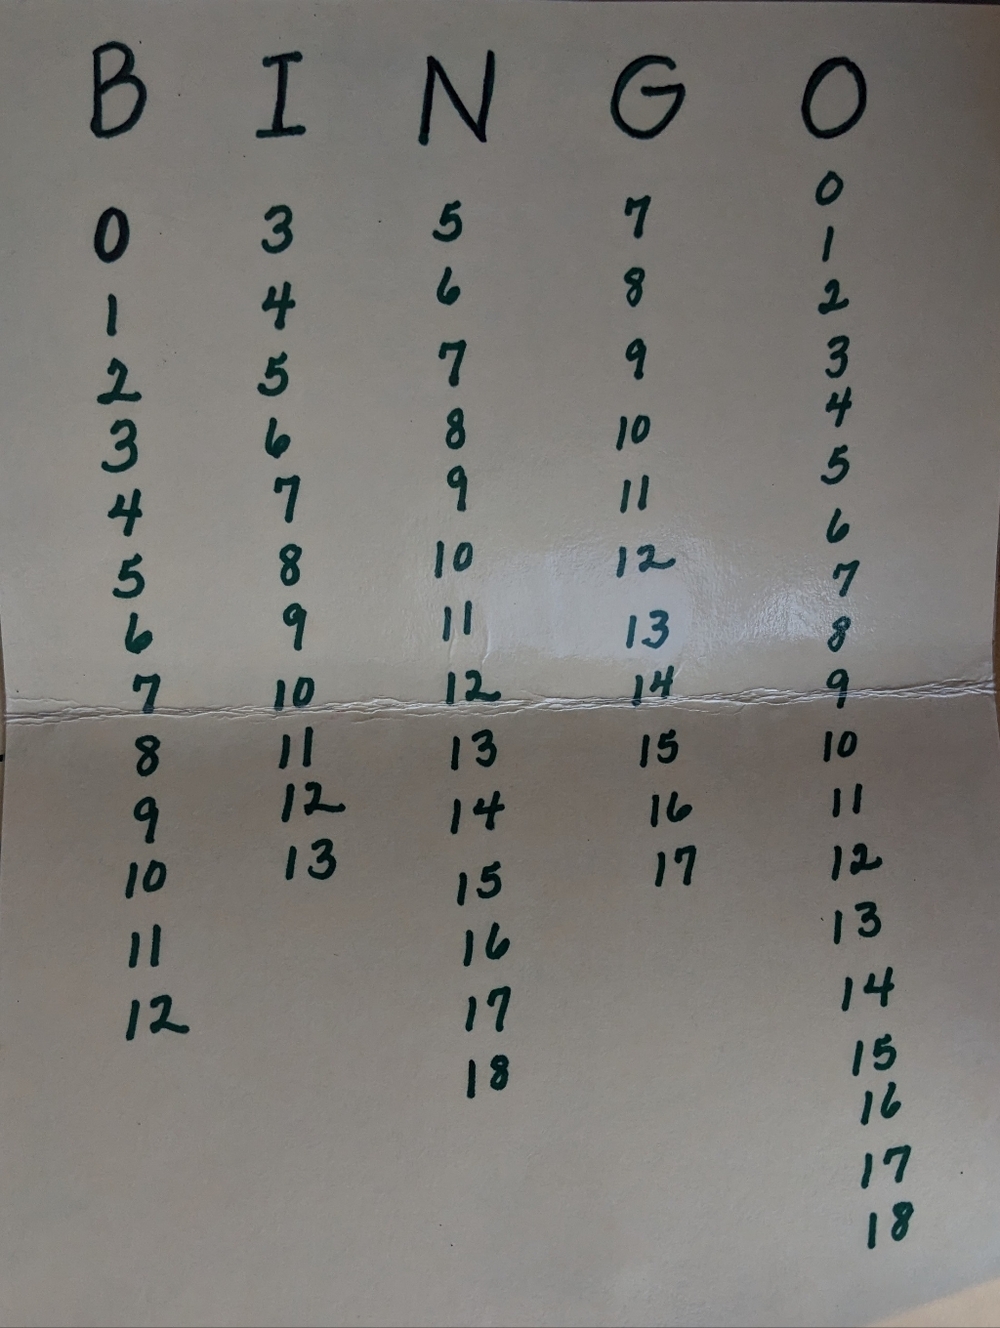 B I N G O
0 3 5 7 0
1 4 6 8 1
2 5 7 9 2
3 6 8 10 3
4 7 9 11 4
5 8 10 12 5
6 9 11 13 6
7 10 12 14 7
8 11 13 15 8
9 12 14 16 9
10 13 15 17 10
11 16 11
12 17 12
18 13
14
15
16
17
18